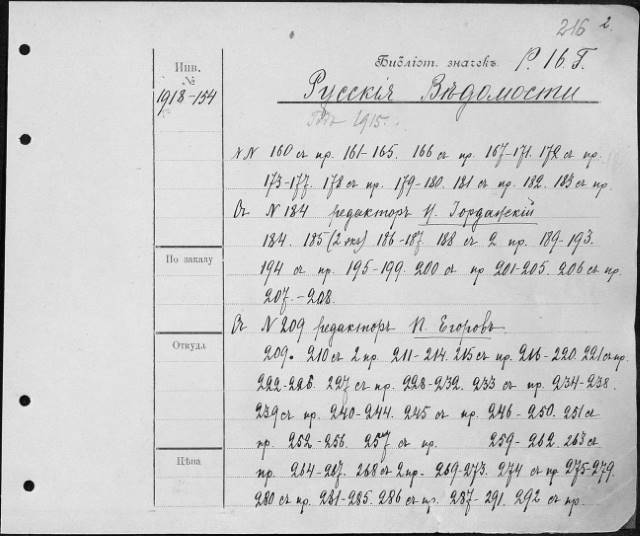 216 2.
Библіот. значекъ Р. 16. Г.
Инв.
№
1918-154
Русскія Вѣдомости
1915.
NN 160 съ пр. 161-165. 166 съ пр. 167-171. 172 съ пр.
173-177. 178 съ пр. 179-180. 181 съ пр. 182. 183 съ пр.
Съ N 184 редакторъ И. Іорданскій
184. 185 (2 экз) 186-187 188 съ 2 пр. 189-193.
194 съ пр. 195-199. 200 съ пр 201-205. 206 съ пр.
По заказу
207.-208.
Съ N 209 редакторъ И. Егоровъ
Откуда
209. 210 съ 2 пр. 211-214. 215 съ пр. 216-220. 221 съ пр.
222-226. 227 съ пр. 228-232. 233 съ пр. 234-238.
239 съ пр. 240-244. 245 съ пр. 246-250. 251 съ
пр. 252-256. 257 съ пр. 259-262. 263 съ
Цѣна
пр. 264-267. 268 съ 2 пр. 269-273. 274 съ пр 275-279.
280 съ пр. 281-285. 286 съ пр. 287-291. 292 съ пр.